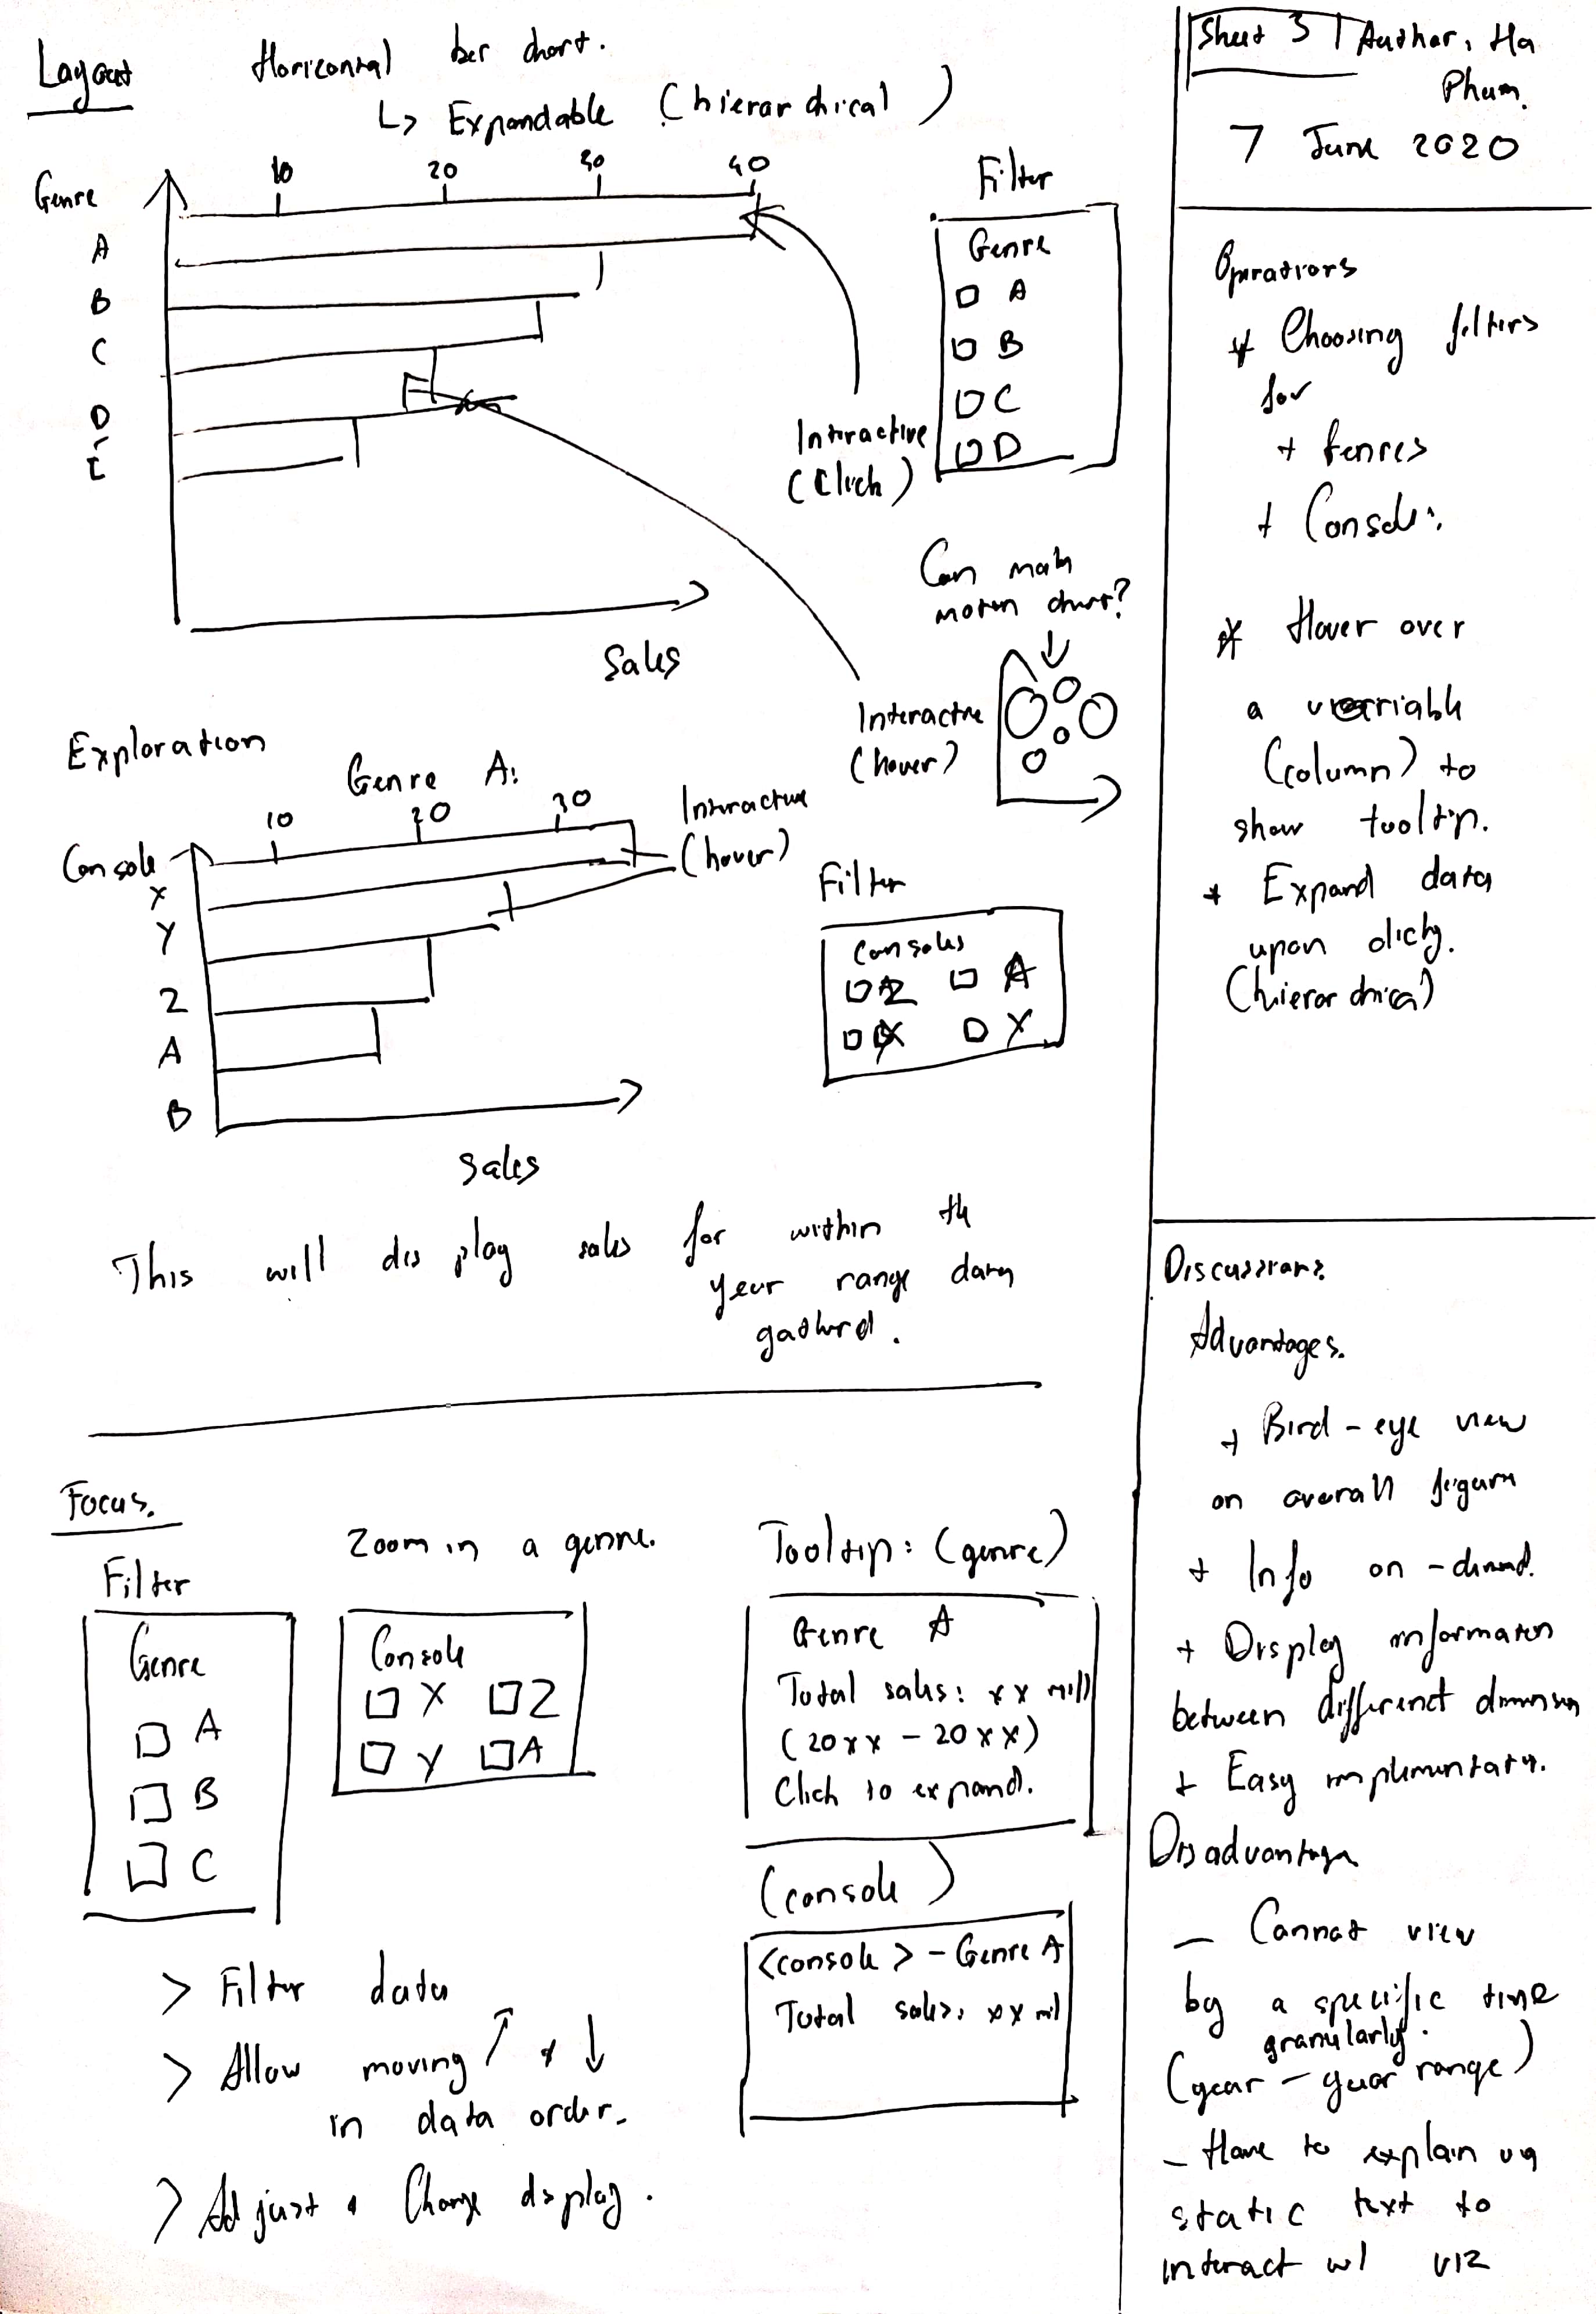 Layout
Horizontal bar chart.
↳ Expandable (hierarchical)
Genre
10 20 30 40
A
B
C
D
E
Sales
Interactive
(click)
Filter
Genre
A
B
C
D
Can make
motion chart?
Interactive
(hover)
Exploration
Genre A:
Console
10 20 30
X
Y
Z
A
B
Sales
Interactive
(hover)
Filter
Consoles
Z A
X Y
This will display sales for within the
year range data
gathered.
Focus.
Filter
Genre
A
B
C
Zoom in a genre.
Console
X Z
Y A
Tooltip: (genre)
Genre A
Total sales: xx mill
(20xx - 20xx)
Click to expand.
(console)
<console> - Genre A
Total sales: xx mil
> Filter data
> Allow moving ↑ & ↓
in data order.
> Adjust & Change display.
Sheet 3 | Author: Ha
Pham.
7 June 2020
Operations
* Choosing filters
for
+ Genres
+ Consoles.
* Hover over
a variable
(column) to
show tooltip.
* Expand data
upon clicking.
(hierarchical)
Discussions.
Advantages.
+ Bird-eye view
on overall figure
+ Info on-demand.
+ Display information
between different dimension
+ Easy implementation.
Disadvantage
- Cannot view
by a specific time
granularly.
(year - year range)
- Have to explain via
static text to
interact w/ viz